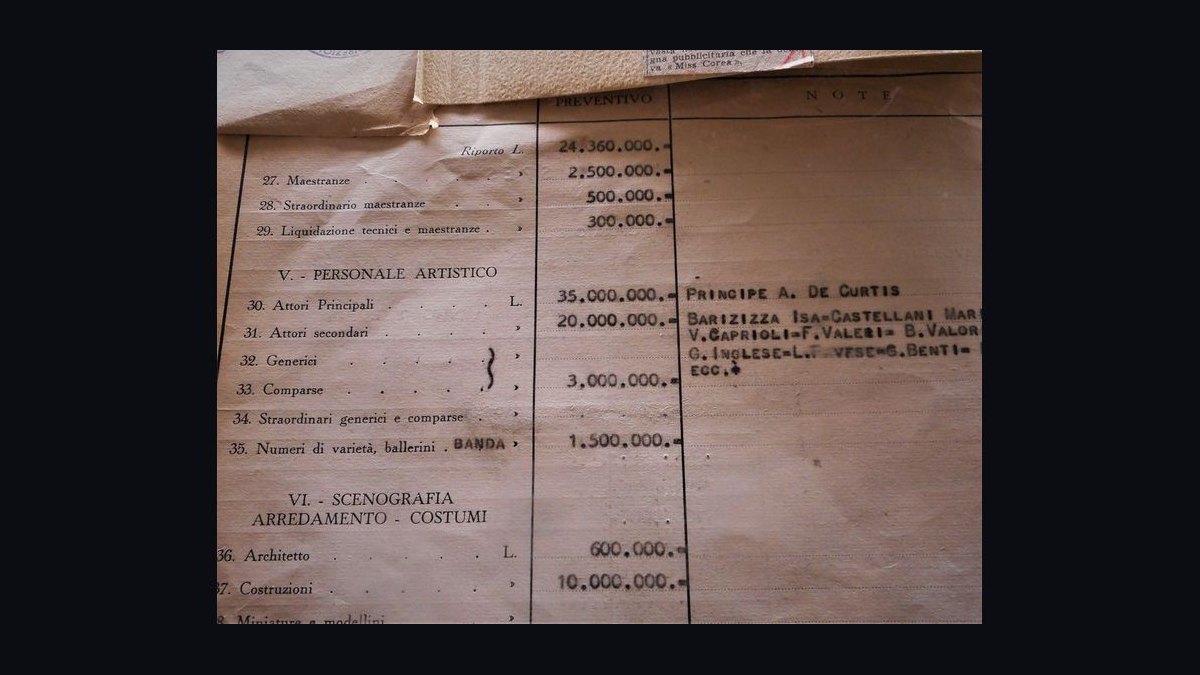 gna pubblicitaria che la
va «Miss Corea».
PREVENTIVO NOTE
Riporto L. 24.360.000.=
27. Maestranze . . . . » 2.500.000.=
28. Straordinario maestranze . . » 500.000.=
29. Liquidazione tecnici e maestranze . » 300.000.=
V. - PERSONALE ARTISTICO
30. Attori Principali . . . . L. 35.000.000.= PRINCIPE A. DE CURTIS
31. Attori secondari . . . . » 20.000.000.= BARIZIZZA ISA=CASTELLANI MAR
V.CAPRIOLI=F.VALERI= B.VALOR
32. Generici . . . . . » G.INGLESE=L. VESE=G.BENTI=
ECC.
33. Comparse . . . . . » 3.000.000.=
34. Straordinari generici e comparse . »
35. Numeri di varietà, ballerini . BANDA » 1.500.000.=
VI. - SCENOGRAFIA
ARREDAMENTO - COSTUMI
36. Architetto . . . . . L. 600.000.=
37. Costruzioni . . . . . » 10.000.000.=
8. Miniature e modellini »